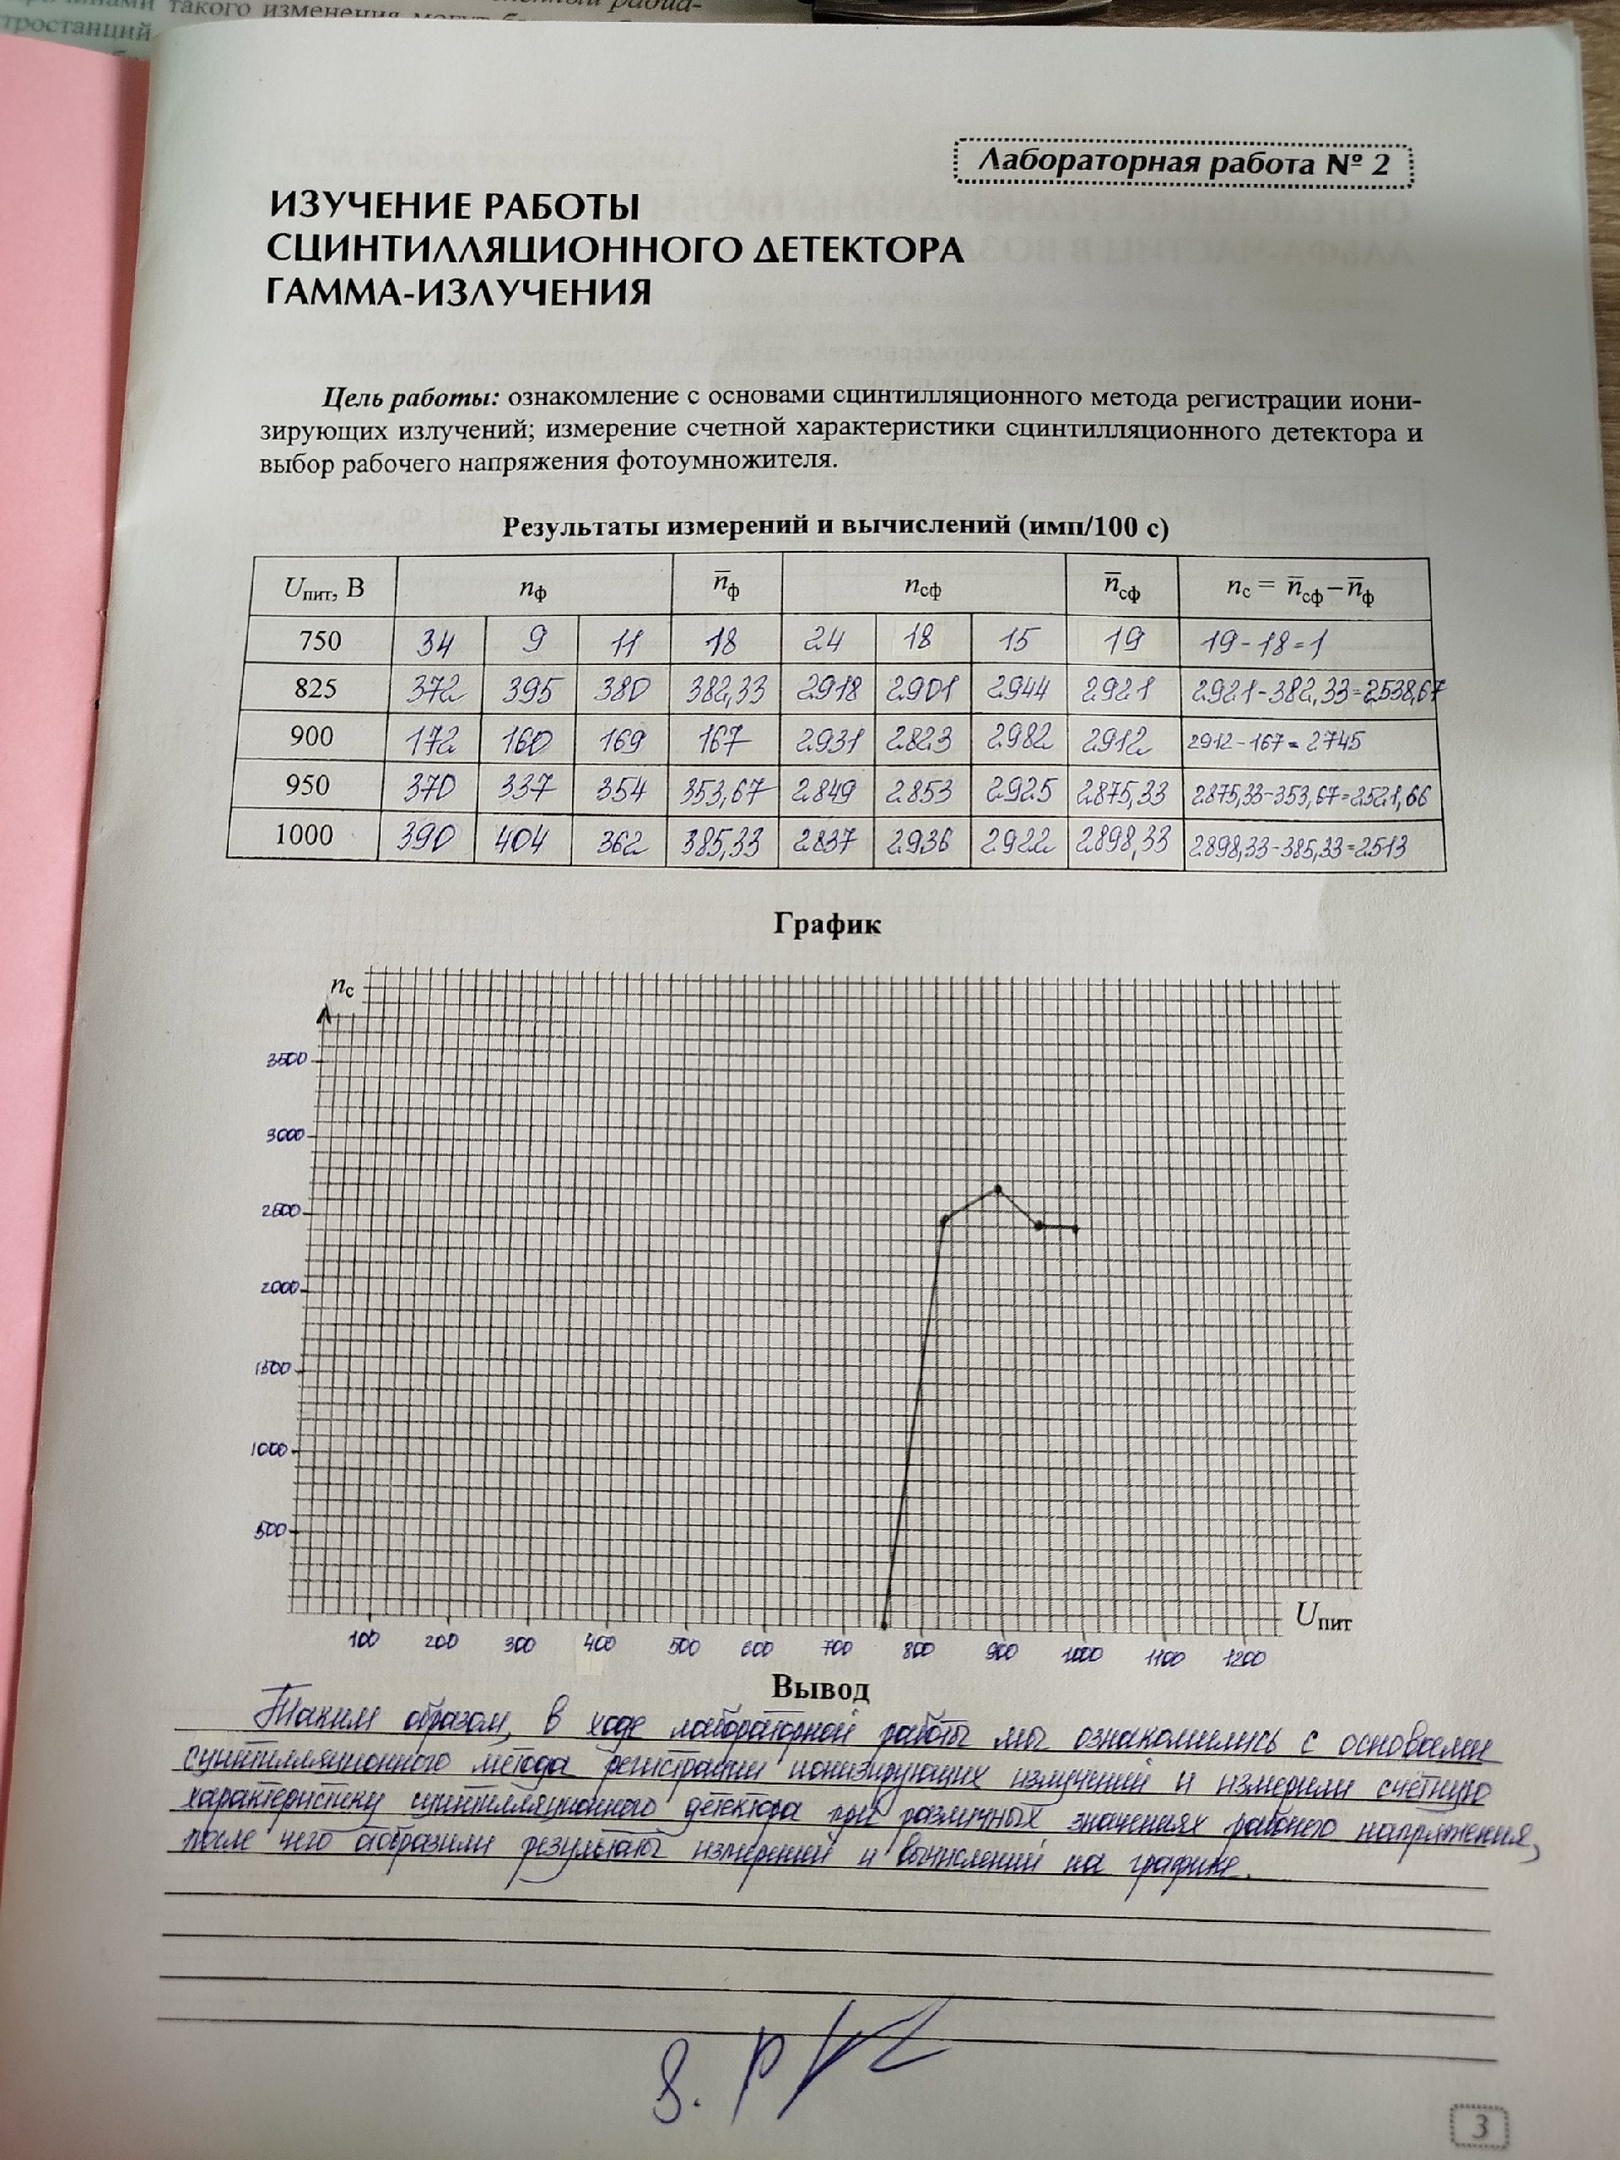 тростанций
такого изменения могут
Лабораторная работа № 2
ИЗУЧЕНИЕ РАБОТЫ
СЦИНТИЛЛЯЦИОННОГО ДЕТЕКТОРА
ГАММА-ИЗЛУЧЕНИЯ
Цель работы: ознакомление с основами сцинтилляционного метода регистрации иони-
зирующих излучений; измерение счетной характеристики сцинтилляционного детектора и
выбор рабочего напряжения фотоумножителя.
Результаты измерений и вычислений (имп/100 с)
Uпит, В nф n̅ф nсф n̅сф nс = n̅сф – n̅ф
750 34 9 11 18 24 18 15 19 19-18=1
825 372 395 380 382,33 2918 2901 2944 2921 2921-382,33=2538,67
900 172 160 169 167 2931 2823 2982 2912 2912-167=2745
950 370 337 354 353,67 2849 2853 2925 2875,33 2875,33-353,67=2521,66
1000 390 404 362 385,33 2837 2936 2922 2898,33 2898,33-385,33=2513
График
nс
3500
3000
2500
2000
1500
1000
500
Uпит
100 200 300 400 500 600 700 800 900 1000 1100 1200
Вывод
Таким образом, в ходе лабораторной работы мы ознакомились с основами
сцинтилляционного метода регистрации ионизирующих излучений и измерили счётную
характеристику сцинтилляционного детектора при различных значениях рабочего напряжения,
после чего отобразили результаты измерений и вычислений на графике.
3